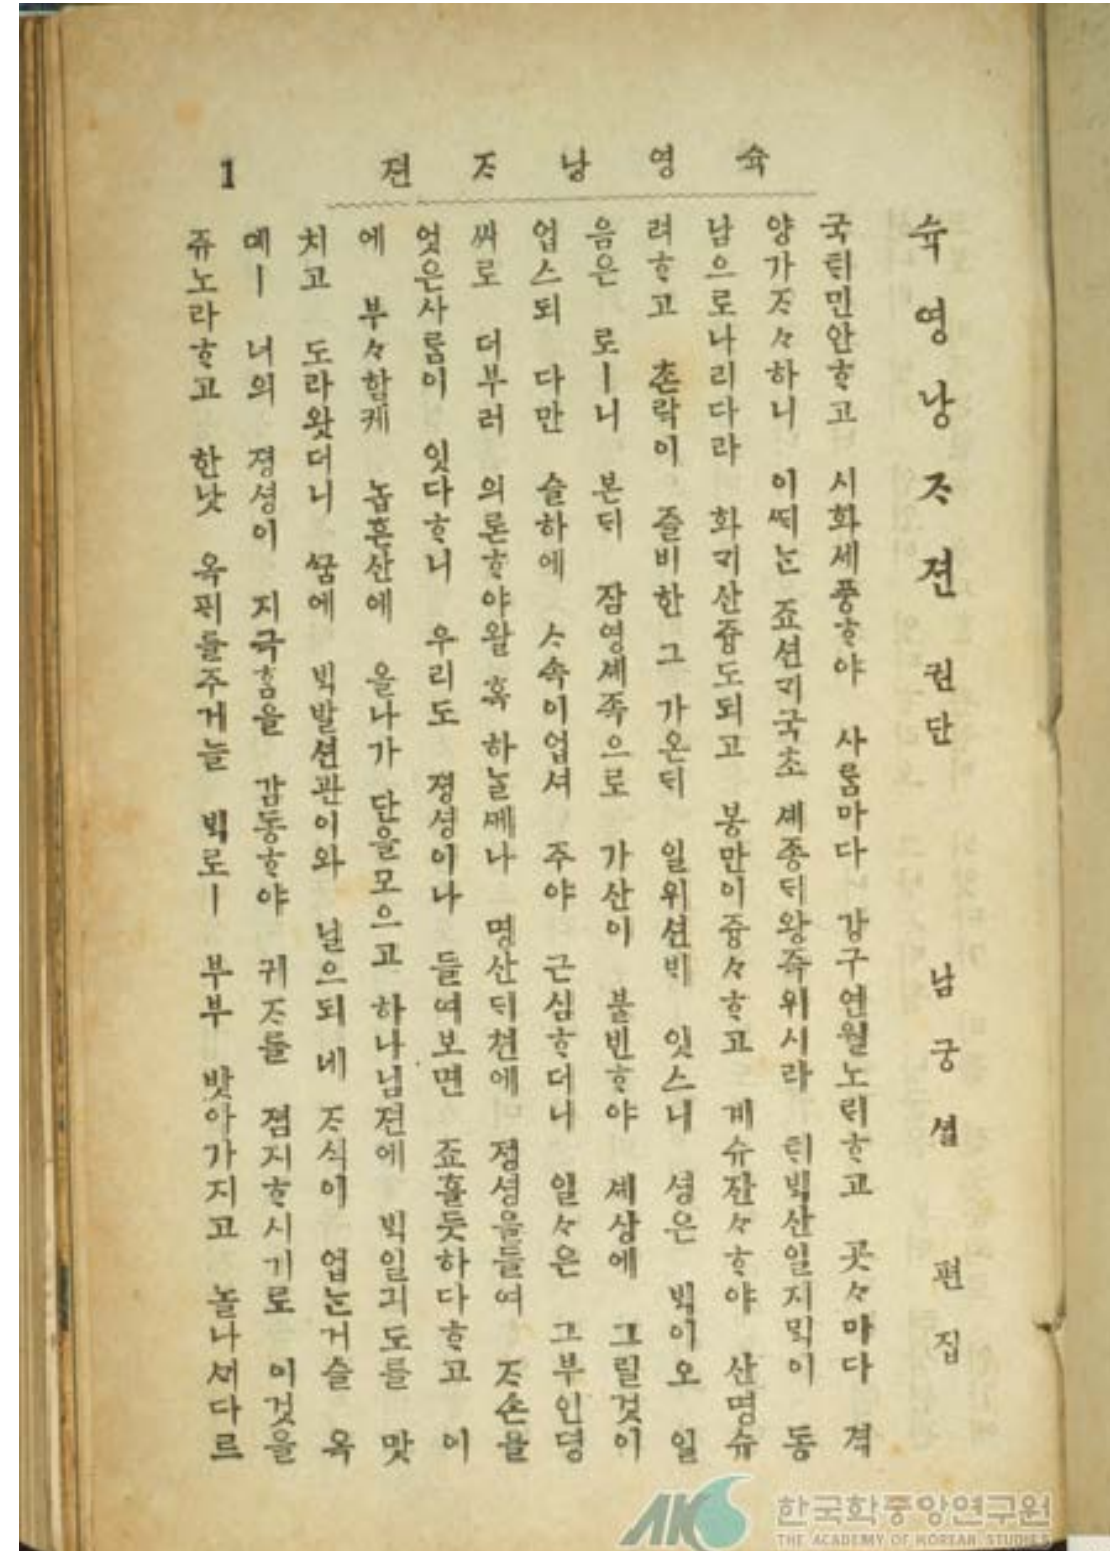 슉영낭ᄌᆞ젼 1
슉영낭ᄌᆞ젼 권단 남궁셜 편집
국ᄐᆡ민안ᄒᆞ고 시화세풍ᄒᆞ야 사ᄅᆞᆷ마다 강구연월노ᄅᆡᄒᆞ고 곳々마다 격
양가ᄌᆞ々하니 이ᄯᅢᄂᆞᆫ 죠션ᄀᆡ국초 셰종ᄃᆡ왕즉위시라 ᄐᆡᄇᆡᆨ산일지ᄆᆡᆨ이 동
남으로나리다라 화ᄀᆡ산즁도되고 봉만이즁々ᄒᆞ고 계슈잔々ᄒᆞ야 산명슈
려ᄒᆞ고 촌락이 즐비한 그 가온ᄃᆡ 일위션ᄇᆡ 잇스니 셩은 ᄇᆡᆨ이오 일
음은 로ㅣ니 본ᄃᆡ 잠영셰족으로 가산이 불빈ᄒᆞ야 셰상에 그릴것이
업스되 다만 슬하에 ᄉᆞ속이업셔 주야 근심ᄒᆞ더니 일々은 그부인뎡
씨로 더부러 의론ᄒᆞ야왈 혹 하ᄂᆞᆯᄭᅦ나 명산ᄃᆡ쳔에 졍셩을들여 ᄌᆞ손을
엇은사ᄅᆞᆷ이 잇다ᄒᆞ니 우리도 졍셩이나 들여보면 죠흘듯하다ᄒᆞ고 이
에 부々함케 놉흔산에 올나가 단을모으고 하나님젼에 ᄇᆡᆨ일긔도를 맛
치고 도라왓더니 ᄭᅮᆷ에 ᄇᆡᆨ발션관이와 닐으되 네 ᄌᆞ식이 업ᄂᆞᆫ거슬 옥
뎨ㅣ 너의 졍셩이 지극ᄒᆞᆷ을 감동ᄒᆞ야 귀ᄌᆞ를 졈지ᄒᆞ시기로 이것을
쥬노라ᄒᆞ고 한낫 옥ᄑᆡ를주거늘 ᄇᆡᆨ로ㅣ 부부 밧아가지고 놀나ᄭᆡ다르
AKS 한국학중앙연구원
THE ACADEMY OF KOREAN STUDIES